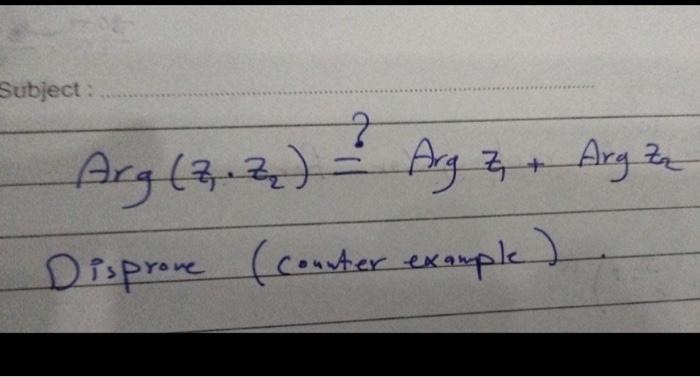 Subject :
Arg (z₁ . z₂) =? Arg z₁ + Arg z₂
Disprove (counter example) .